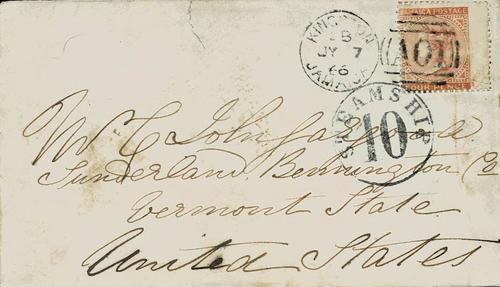 KINGSTON
B
JY 7
66
JAMAICA
JAMAICA POSTAGE
A01
FOUR PENCE
STEAMSHIP
10
John
Sunderland Bennington Co
Vermont State
United States